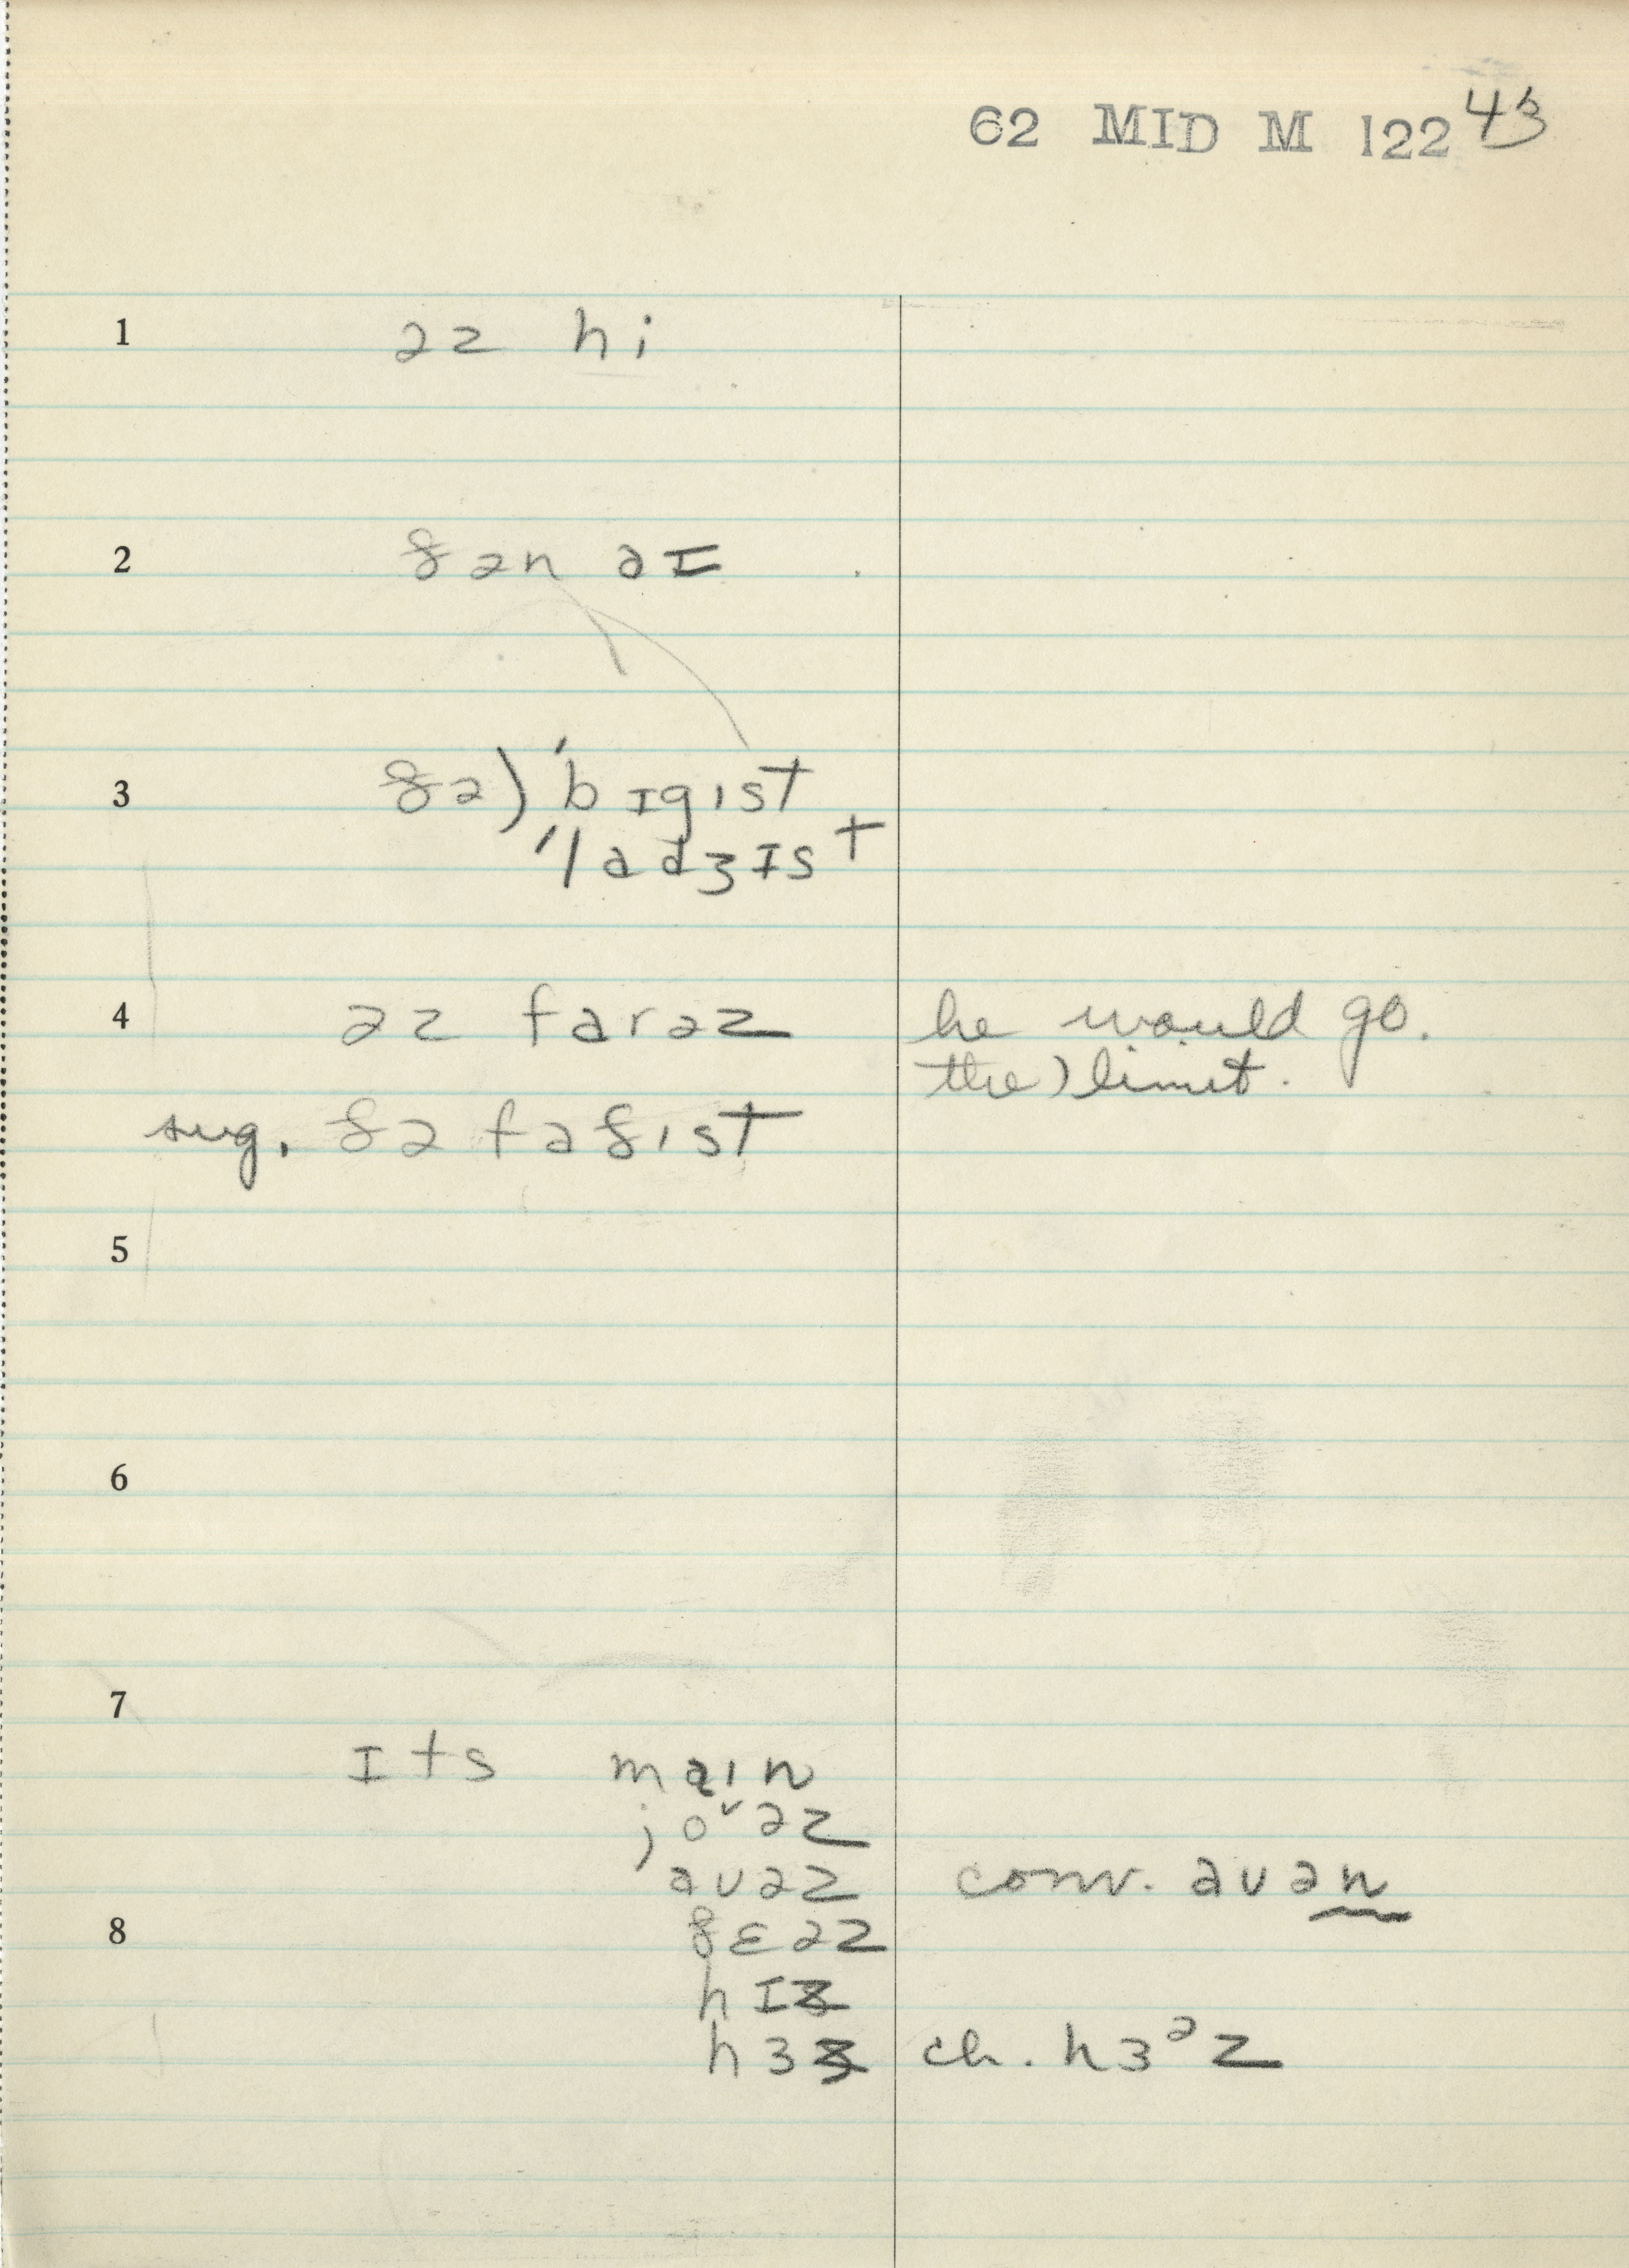 62 MID M 122 43
1 əz hi
2 ðən aɪ
3 ðə) ˈbɪgɪst
ˈladʒɪst
4 əz farəz he would go.
the) limit.
sug. ðə faðɪst
5
6
7
ɪts maɪn
joᵛəz
avəz conv. avən
8 ðɛəz
hɪz
hɜz ch. hɜᵊz